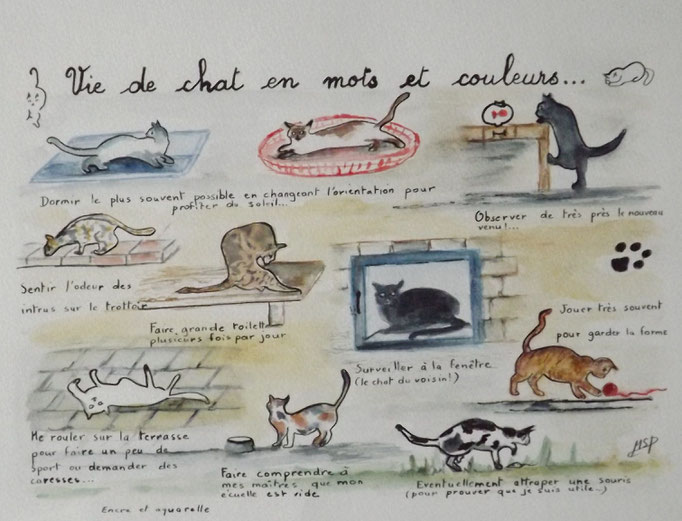 Vie de chat en mots et couleurs...
Dormir le plus souvent possible en changeant l'orientation pour
profiter du soleil...
Observer de très près le nouveau
venu!...
Sentir l'odeur des
intrus sur le trottoir
Faire grande toilette
plusieurs fois par jour
Surveiller à la fenêtre...
(le chat du voisin!)
Jouer très souvent
pour garder la forme
Me rouler sur la terrasse
pour faire un peu de
sport ou demander des
caresses...
Faire comprendre à
mes maîtres que mon
écuelle est vide
Eventuellement attraper une souris
(pour prouver que je suis utile...)
MSP
Encre et aquarelle